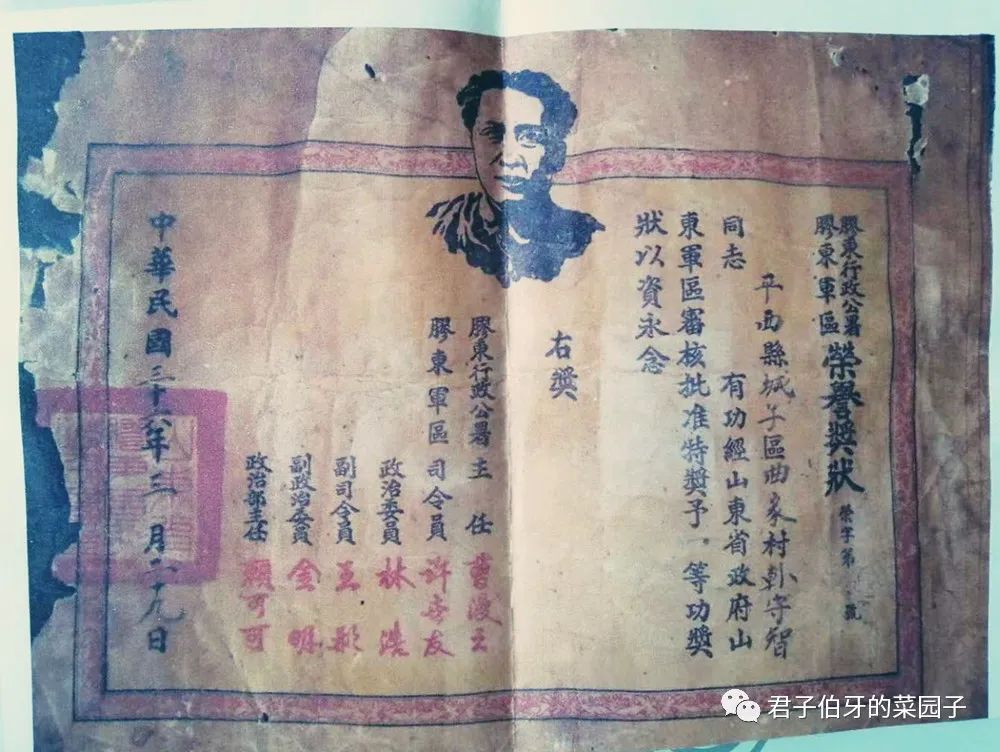 膠東行政公署
膠東軍區 榮譽獎狀 榮字第 號
平西縣城子區曲家村 守智
同志 有功經山東省政府山
東軍區審核批准特獎予一等功獎
狀以資永念
右獎
膠東行政公署主任 曹漫之
膠東軍區司令員 許世友
政治委員 林浩
副司令員 王彬
副政治委員 金明
政治部主任 賴可可
中華民國三十六年三月二十九日
君子伯牙的菜园子